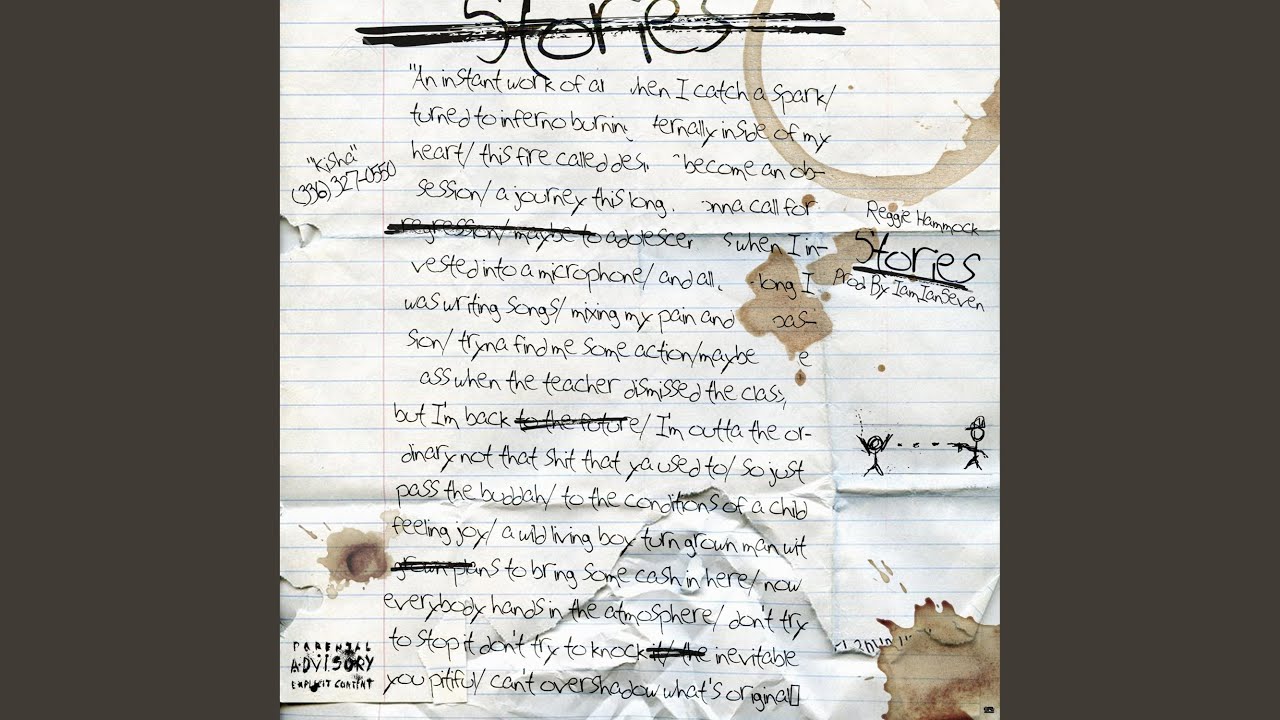 Stories
"An instant work of a when I catch a spark/
turned to inferno burnin ternally inside of my
heart/ this fire called des become an ob-
session/ a journey this long. onna call for
regression/ maybe to adolescen s when I in-
vested into a microphone/ and all. long I
was writing songs/ mixing my pain and pas-
sion/ tryna find me some action/maybe e
ass when the teacher dismissed the class,
but I'm back to the future/ I'm outta the or-
dinary not that shit that ya used to/ so just
pass the buddah/ to the conditions of a child
feeling joy/ a wild living boy turn grown man wit
grown plans to bring some cash in here/ now
everybody hands in the atmosphere/ don't try
to stop it don't try to knock it/ the inevitable
you pitiful/ can't overshadow what's original
"Kisha"
(336) 327-0550
Reggie Hammock
Stories
Prod By IamIanSeven
PARENTAL
ADVISORY
EXPLICIT CONTENT